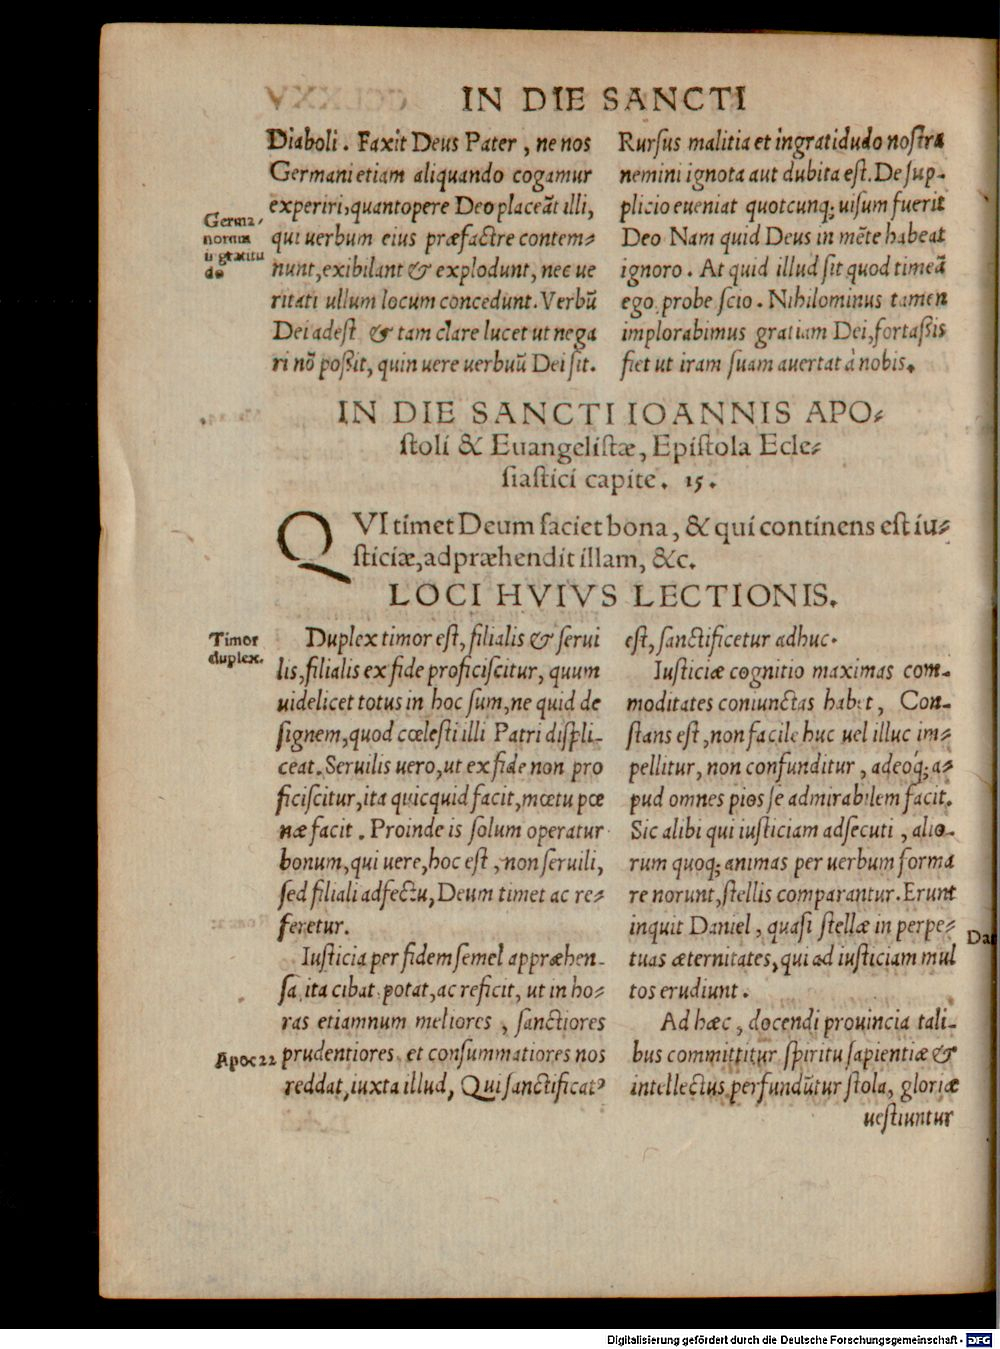 IN DIE SANCTI
Diaboli. Faxit Deus Pater, ne nos
Germani etiam aliquando cogamur
experiri, quantopere Deo placeāt illi,
qui uerbum eius præfactre contem-
nunt, exibilant & explodunt, nec ue
ritati ullum locum concedunt. Verbū
Dei adest & tam clare lucet ut nega
ri nō poßit, quin uere uerbuū Dei sit.
Germa-
norum
ĩgratitu
do
Rursus malitia et ingratidudo nostra
nemini ignota aut dubita est. De sup-
plicio eueniat quotcunq; uisum fuerit
Deo Nam quid Deus in mēte habeat
ignoro. At quid illud sit quod timeā
ego, probe scio. Nihilominus tamen
implorabimus gratiam Dei, fortaßis
fiet ut iram suam auertat à nobis.
IN DIE SANCTI IOANNIS APO-
stoli & Euangelistæ, Epistola Ecle-
siastici capite. 15.
QVI timet Deum faciet bona, & qui continens est iu-
sticiæ, adpræhendit illam, &c.
LOCI HVIVS LECTIONIS.
Timor
duplex.
Duplex timor est, filialis & serui
lis, filialis ex fide proficiscitur, quum
uidelicet totus in hoc sum, ne quid de
signem, quod cœlesti illi Patri displi-
ceat. Seruilis uero, ut ex fide non pro
ficiscitur, ita quicquid facit, mœtu pœ
næ facit. Proinde is solum operatur
bonum, qui uere, hoc est, non seruili,
sed filiali adfectu, Deum timet ac re-
feretur.
Iusticia per fidem semel appræhen-
sa, ita cibat, potat, ac reficit, ut in ho-
ras etiamnum meliores, sanctiores
prudentiores, et consummatiores nos
reddat, iuxta illud, Qui sanctificat9
Apoc 22
est, sanctificetur adhuc.
Iusticiæ cognitio maximas com-
moditates coniunctas habet, Con-
stans est, non facile huc uel illuc im-
pellitur, non confunditur, adeoq́; a-
pud omnes pios se admirabilem facit.
Sic alibi qui iusticiam adsecuti, alio-
rum quoq; animas per uerbum forma
re norunt, stellis comparantur. Erunt
inquit Daniel, quasi stellæ in perpe-
tuas æternitates, qui ad iusticiam mul
tos erudiunt.
Ad hæc, docendi prouincia tali-
bus committitur spiritu sapientiæ &
intellectus perfundūtur stola, gloriæ
uestiuntur
Digitalisierung gefördert durch die Deutsche Forschungsgemeinschaft - DFG